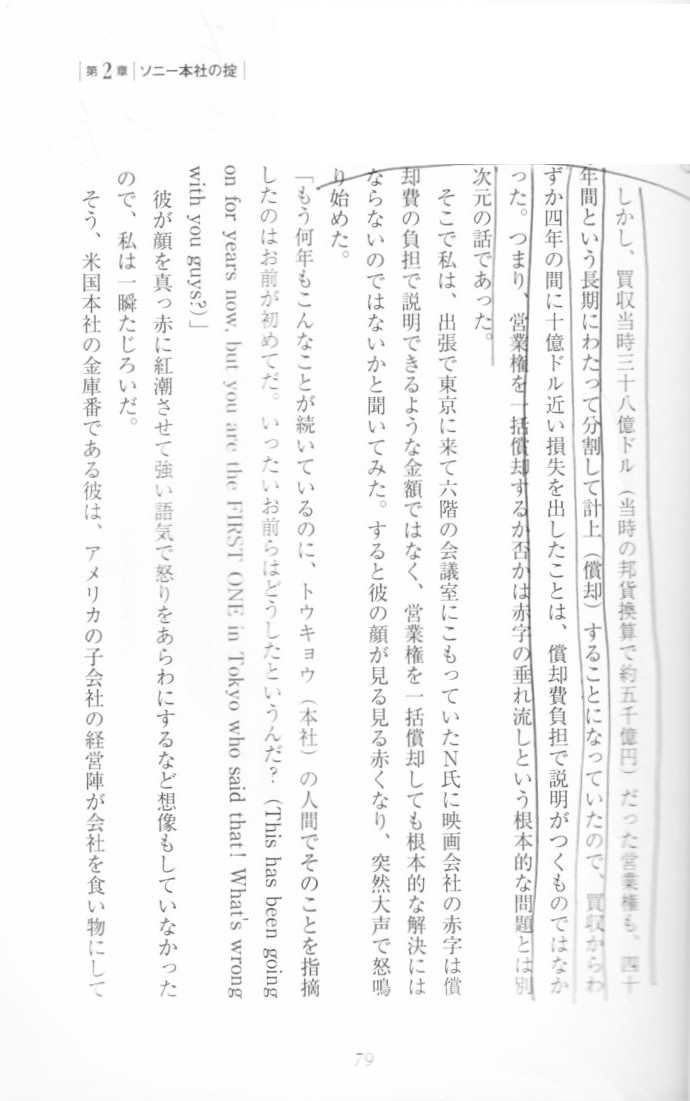 第2章 ソニー本社の掟
しかし、買収当時三十八億ドル（当時の邦貨換算で約五千億円）だった営業権も、四十
年間という長期にわたって分割して計上（償却）することになっていたので、買収からわ
ずか四年の間に十億ドル近い損失を出したことは、償却費負担で説明がつくものではなか
った。つまり、営業権を一括償却するか否かは赤字の垂れ流しという根本的な問題とは別
次元の話であった。
そこで私は、出張で東京に来て六階の会議室にこもっていたN氏に映画会社の赤字は償
却費の負担で説明できるような金額ではなく、営業権を一括償却しても根本的な解決には
ならないのではないかと聞いてみた。すると彼の顔が見る見る赤くなり、突然大声で怒鳴
り始めた。
「もう何年もこんなことが続いているのに、トウキョウ（本社）の人間でそのことを指摘
したのはお前が初めてだ。いったいお前らはどうしたというんだ？（This has been going
on for years now, but you are the FIRST ONE in Tokyo who said that! What's wrong
with you guys?）」
彼が顔を真っ赤に紅潮させて強い語気で怒りをあらわにするなど想像もしていなかった
ので、私は一瞬たじろいだ。
そう、米国本社の金庫番である彼は、アメリカの子会社の経営陣が会社を食い物にして
79